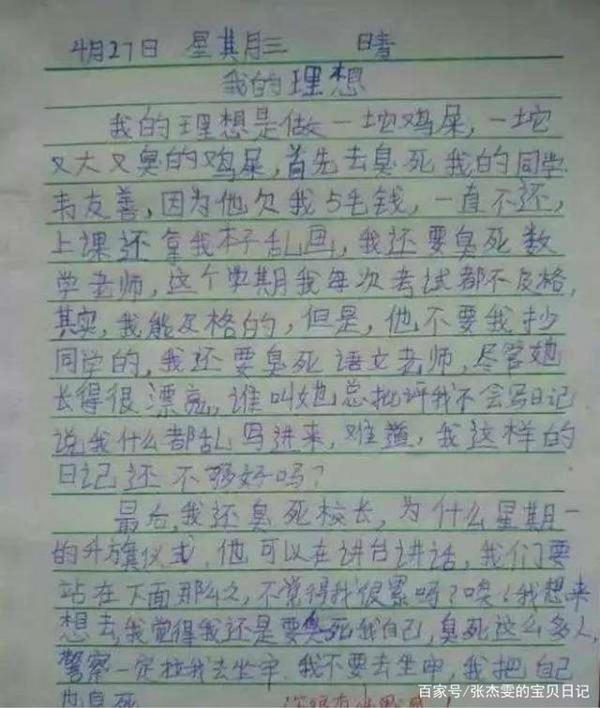 4月27日 星其月三 晴
我的理想
我的理想是做一坨鸡屎,一坨
又大又臭的鸡屎,首先去臭死我的同学
韦友善,因为他欠我5毛钱,一直不还,
上课还拿我本子乱画,我还要臭死数
学老师,这个学期我每次考试都不及格,
其实,我能及格的,但是,他不要我抄
同学的,我还要臭死语文老师,尽管她
长得很漂亮,谁叫她总批评我不会写日记
说我什么都乱写进来,难道,我这样的
日记还不够好吗?
最后,我还臭死校长,为什么星期一
的升旗仪式,他可以在讲台讲话,我们要
站在下面那么久,不觉得我很累吗?唉!我想来
想去,我觉得我还是要臭死我自己,臭死这么多人,
警察一定拉我去坐牢,我不要去坐牢,我把自己
臭死
百家号/张杰雯的宝贝日记